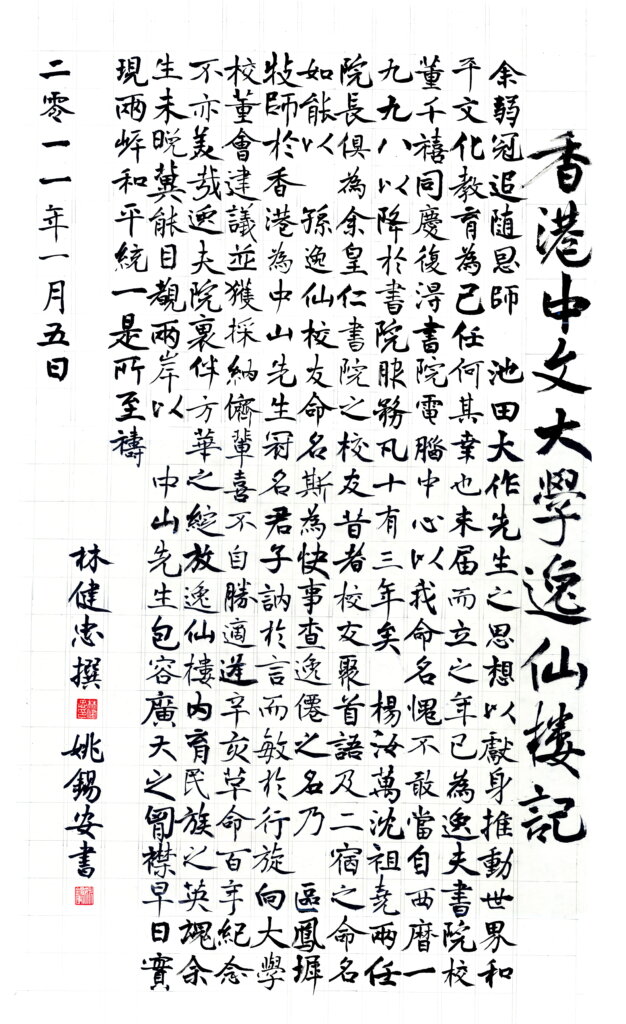 香港中文大學逸仙樓記
余弱冠追隨恩師 池田大作先生之思想以獻身推動世界和
平文化教育為己任何其幸也未屆而立之年已為逸夫書院校
董千禧同慶復得書院電腦中心以我命名愧不敢當自西曆一
九九八以降於書院服務凡十有三年矣 楊汝萬沈祖堯兩任
院長俱為余皇仁書院之校友昔者校友聚首語及二宿之命名
如能以 孫逸仙校友命名斯為快事查逸僊之名乃 區鳳墀
牧師於香港為中山先生冠名君子訥於言而敏於行旋向大學
校董會建議並獲採納儕輩喜不自勝適逢辛亥革命百年紀念
不亦美哉逸夫院裏伴方華之綻放逸仙樓內育民族之英魂余
生未晚冀能目覩兩岸以 中山先生包容廣大之胸襟早日實
現兩岸和平統一是所至禱
林健忠撰 姚錫安書
二零一一年一月五日